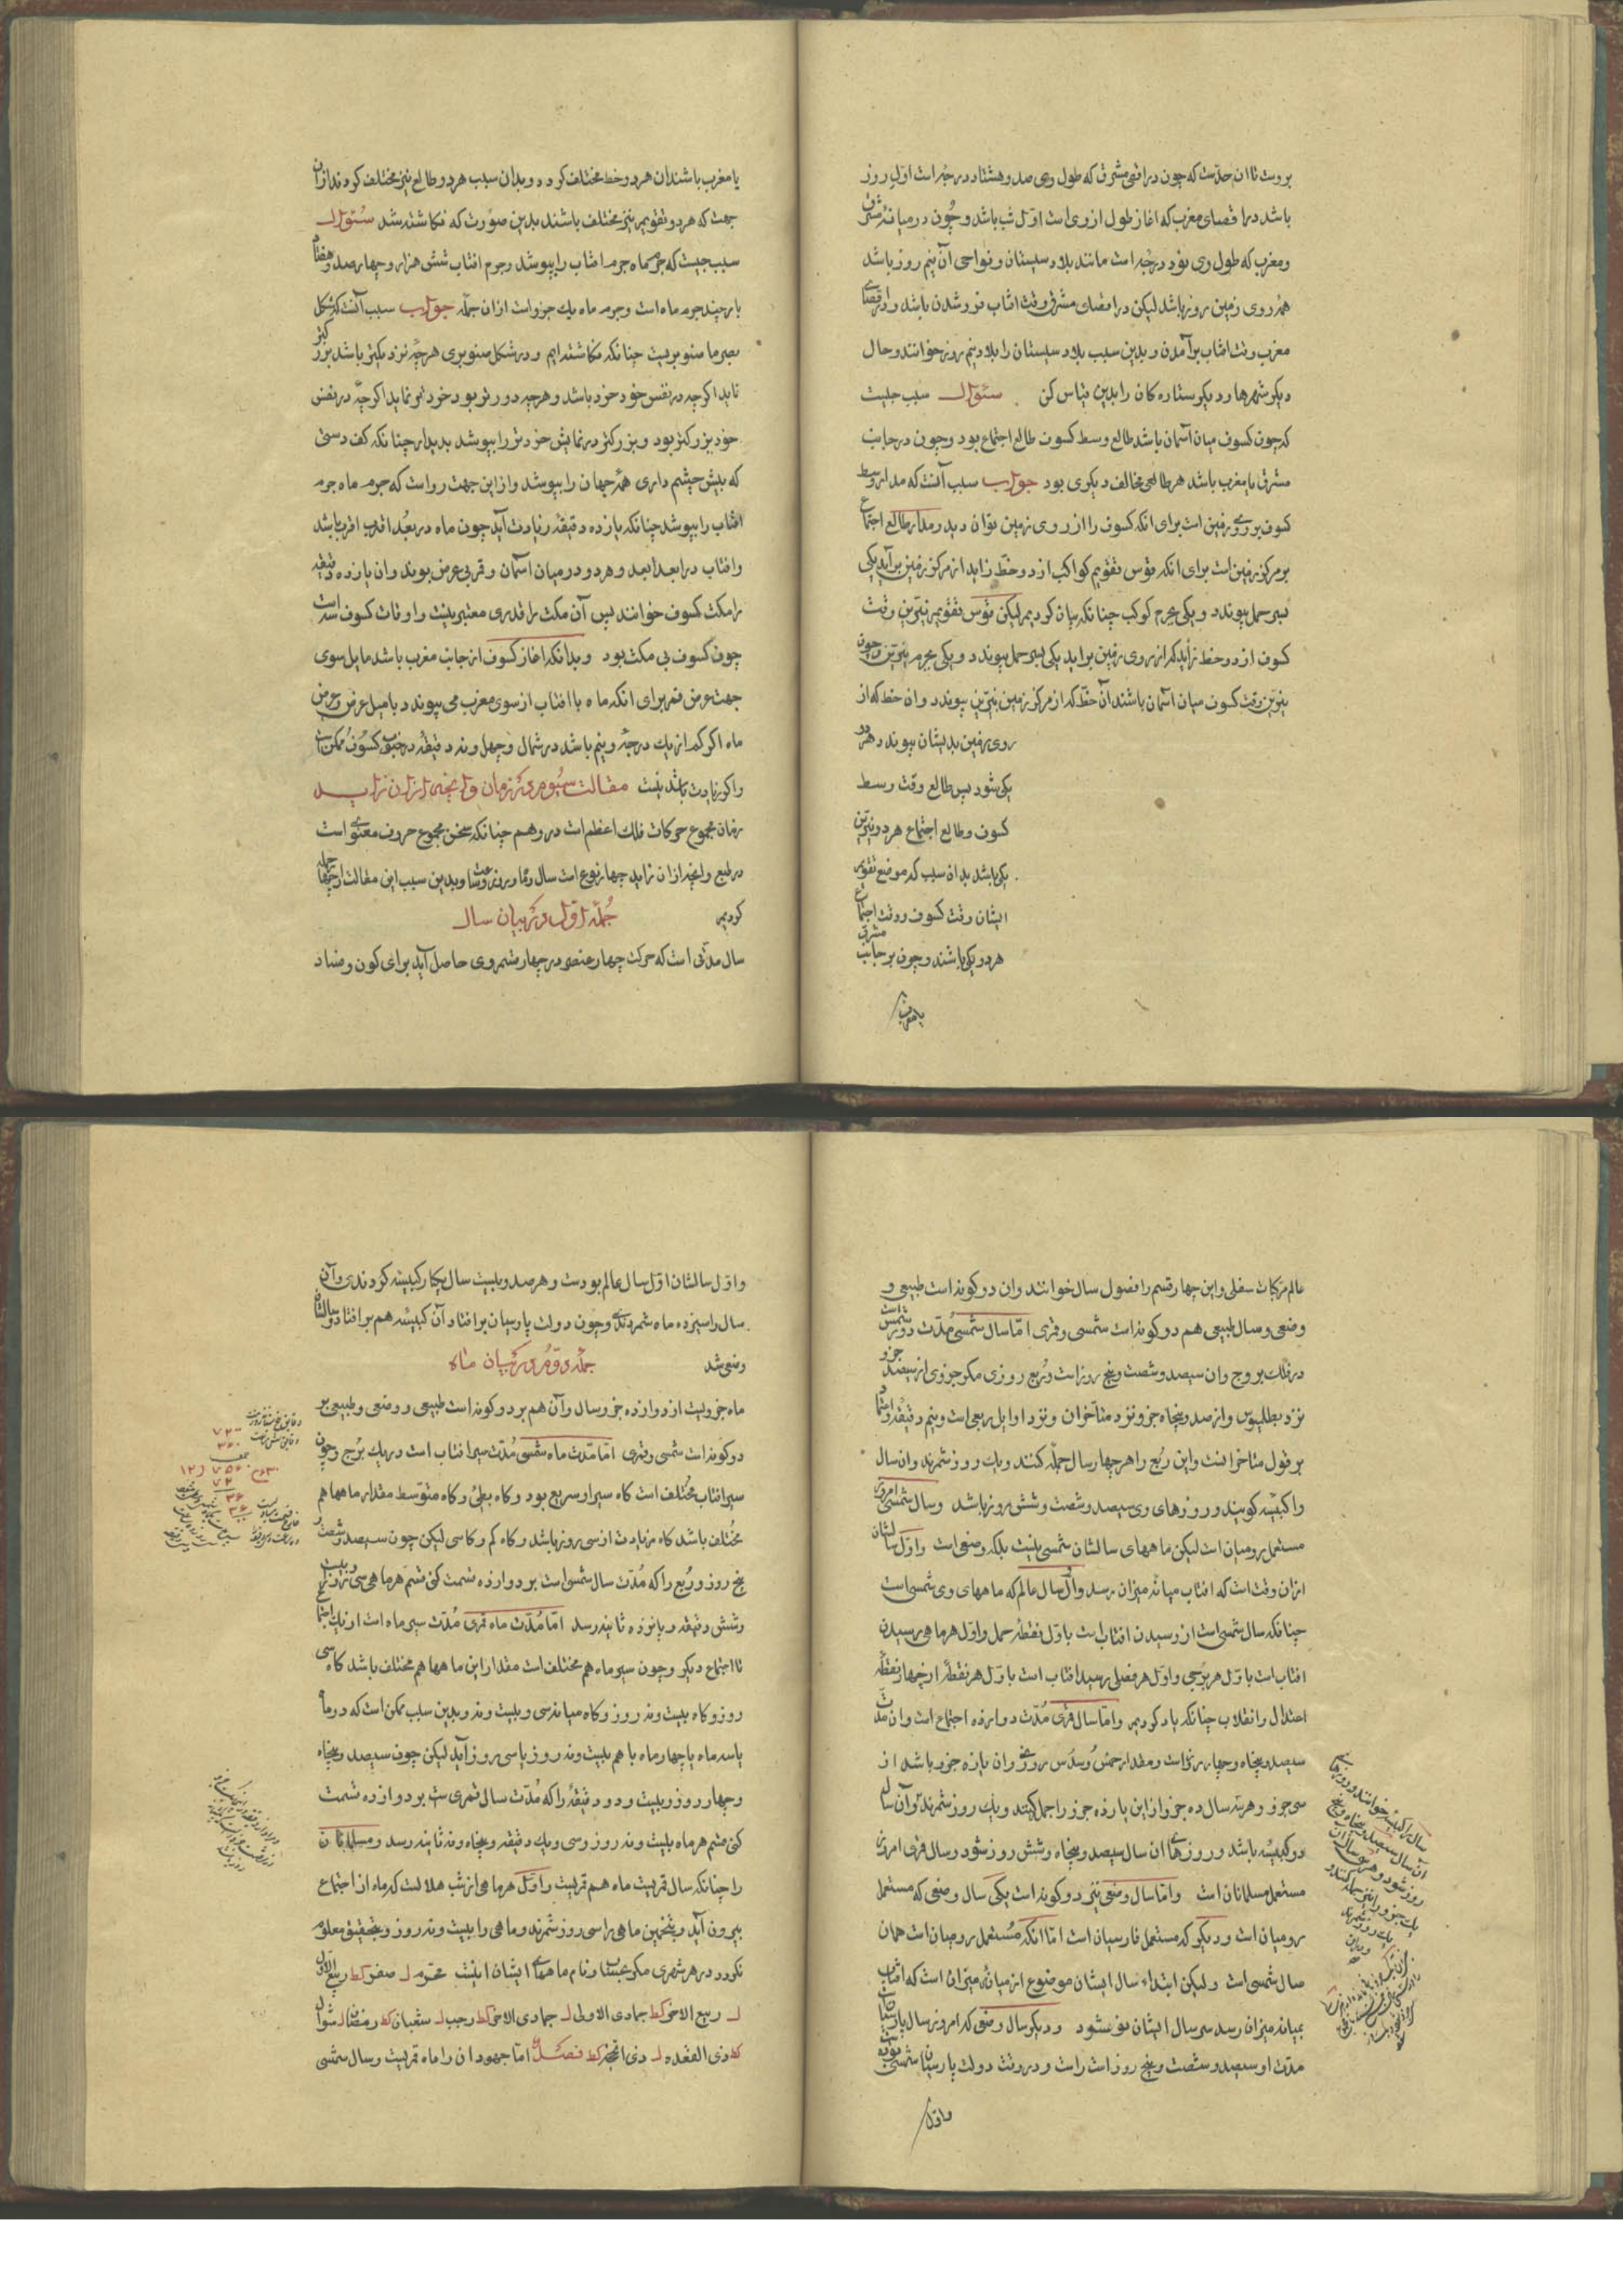 بروست تا ان حدّست که چون در اقصی مشرق که طول وی صد و هشتاد درجه است اوّل روز
باشد در اقصای مغرب که اغاز طول از وی است اوّل شب باشد و چون در میانهٔ مشرق
و مغرب که طول وی نود درجه است مانند بلاد سیستان و نواحی آن نیم روز باشد
همه روی زمین روز باشد لیکن در اقصای مشرق وقت افتاب فرو شدن باشد و در اقصای
مغرب وقت افتاب برآمدن و بدین سبب بلاد سیستان را بلاد نیم روز خوانند و حال
دیکر شهرها و دیکر ستاره کان را بدین قیاس کن سئوال سبب چیست
که چون کسوف میان آسمان باشد طالع وسط کسوف طالع اجتماع بود و چون در جانب
مشرق یا مغرب باشد هر طالعی مخالف دیکری بود جواب سبب آنست که مدار وسط
کسوف بر روی زمین است برای انکه کسوف را از روی زمین توان دید و مدار طالع اجتماع
بر مرکز زمین است برای انکه قوس تقویم کواکب از دو خط زاید از مرکز زمین برآید یکی
بسر حمل پیوندد و یکی بجرم کوکب چنانکه بیان کردیم لیکن قوس تقویم نیّرین وقت
کسوف از دو خط زاید که از روی زمین براید یکی بسر حمل پیوندد و یکی بجرم نیّرین و چون
نیّرین وقت کسوف میان آسمان باشند آن خط که از مرکز زمین بنیّرین پیوندد وان خط که از
روی زمین بدیشان پیوندد هر دو
یکی شود پس طالع وقت وسط
کسوف و طالع اجتماع هر دو نیّرین
یکی باشد بدان سبب که موضع تقویم
ایشان وقت کسوف و وقت اجتماع
هر دو یکی باشند و چون بر جانب مشرق
یا مغرب
یا مغرب باشند ان هر دو خط مختلف کردد و بدان سبب هر دو طالع نیز مختلف کردند از ان
جهت که هر دو تقویم نیز مختلف باشند بدین صورت که نکاشته شد سئوال
سبب چیست که جرم ماه جرم افتاب را بپوشد و جرم افتاب شش هزار و چهارصد و هفتاد
بار چند جرم ماه است و جرم ماه یك جزو است از ان جمله جواب سبب آنست که شکل
بصر ما صنوبریست چنانکه نکاشته ایم و در شکل صنوبری هر چه نزدیکتر باشد بزرکتر
نماید اکرچه در نفس خود خرد باشد و هرچه دورتر بود خردتر نماید اکرچه در نفس
خود بزرکتر بود و بزرکتر در نمایش خردتر را بپوشد پدیدار چنانکه کف دستی
که پیش چشم داری همه جهان را بپوشد و از این جهت رواست که جرم ماه جرم
افتاب را بپوشد چنانکه یازده دقیقه زیادت آید چون ماه در بعُد اقرب اقرب باشد
و افتاب در ابعد ابعد و هر دو در میان آسمان و قمر بی عرض بوند وان یازده دقیقه
را مکث کسوف خوانند پس آن مکث را قدری معتبر نیست و اوقات کسوف سه است
چون کسوف بی مکث بود و بدانکه اغاز کسوف از جانب مغرب باشد مایل سوی
جهت عرض قمر برای انکه ماه با افتاب از سوی مغرب می پیوندد با میل عرض و عرض
ماه اکر کم از یك درجه و نیم باشد در شمال و چهل و نه دقیقه در جنوب کسوف ممکن است
و اکر زیادت باشد نیست مقالت سیوم در زمان و انچه از ان زاید
زمان مجموع حرکات فلك اعظم است در وهم چنانکه سخن مجموع حروف معنوی است
در طبع و انچه از ان زاید چهار نوع است سال و ماه و روز و ساعت و بدین سبب این مقالت را چهار جمله
کردیم جمله اوّل در بیان سال
سال مدّتی است که حرکت چهار عنصر در چهار قسم وی حاصل آید برای کون و فساد
عالم مرکبات سفلی و این چهار قسم را فصول سال خوانند وان دو کونه است طبیعی و
وضعی و سال طبیعی هم دو کونه است شمسی و قمری امّا سال شمسی مدّت دور شمس است
در فلك بروج وان سیصد و شصت و پنج روز است و ربع روزی مکر جزوی از سیصد جزو
نزد بطلمیوس و از صد و پنجاه جزو نزد متأخران و نزد اوایل ربعی است و نیم دقیقه و امّا
بر قول متأخرانست و این ربع را هر چهار سال جمله کنند و یك روز شمرند وان سال
را کبیسه کویند و روزهای وی سیصد و شصت و شش روز باشد و سال شمسی امروز
مستعمل رومیان است لیکن ماههای سالشان شمسی نیست بلکه وضعی است و اوّل سالشان
از ان وقت است که افتاب میانهٔ میزان رسد و اوّل سال عالم که ماههای وی شمسی است
چنانکه سال شمسی است از رسیدن افتاب است باوّل نقطهٔ حمل و اوّل هر ماهی رسیدن
افتاب است باوّل هر برجی و اوّل هر فصلی رسید افتاب است باوّل هر نقطهٔ از چهار نقطه
اعتدال و انقلاب چنانکه یاد کردیم و امّا سال قمری مُدّت دوازده اجتماع است وان مدّت
سیصد و پنجاه و چهار روز است و مقدار خمس وسُدس روزی وان یازده جزو باشد از
سی جزو و هر سه سال ده جزو از این یازده جزو را جمله کنند و یك روز شمرند تو آن سال
دو کبیسه باشد و روزهای ان سال سیصد و پنجاه و شش روز شود و سال قمری امروز
مستعمل مسلمانان است و امّا سال وضعی نیز دو کونه است یکی سال وضعی که مستعمل
رومیان است و دیکر که مستعمل فارسیان است امّا انکه مُستعمل رومیان است همان
سال شمسی است و لیکن ابتداء سال ایشان موضوع از میانهٔ میزان است که افتاب
بمیانه میزان رسد سر سال ایشان نو شود و دیکر سال وضعی که امروز سال پارسیان است
مدّت او سیصد و شصت و پنج روز است راست و در وقت دولت پارسیان شمسی بوده
و اوّل
و اوّل سالشان اوّل سال عالم بودست و هر صد و بیست سال یکبار کبیسه کردندی و آن
سال را سیزده ماه شمردندی و چون دولت پارسیان برافتاد آن کبیسه هم برافتاد و سالشان
وضعی شد جمله دوّم در بیان ماه
ماه جزویست از دوازده جزو سال و آن هم بر دو کونه است طبیعی و وضعی و طبیعی بر
دو کونه است شمسی و قمری امّا مدّت ماه شمسی مُدّت سیر افتاب است در یك برج و چون
سیر افتاب مُختلف است کاه سیر او سریع بود و کاه بطیٔ و کاه متوسط مقدار ماهها هم
مختلف باشد کاه زیادت از سی روز باشد و کاه کم و کاه سی لیکن چون سیصد و شصت و
پنج روز و ربُع را که مُدّت سال شمسی است بر دوازده قسمت کنی قسم هر ماهی سی روز و بیست
و شش دقیقه و پانزده ثانیه رسد امّا مُدّت ماه قمری مُدّت سیر ماه است از یك اجتماع
تا اجتماع دیکر و چون سیر ماه هم مختلف است مقدار این ماهها هم مختلف باشد کاه سی
روز و کاه بیست و نه روز و کاه میانه سی و بیست و نه و بدین سبب ممکن است که دو ماه
یا سه ماه یا چهار ماه با هم بیست و نه روز یا سی روز آید لیکن چون سیصد و پنجاه
و چهار روز و بیست و دو دقیقه را که مُدّت سال قمری ست بر دوازده قسمت
کنی قسم هر ماه بیست و نه روز و سی و یك دقیقه و پنجاه و نه ثانیه رسد و مسلمانان
را چنانکه سال قمریست ماه هم قمریست و اوّل هر ماهی از شب هلالست که ماه از اجتماع
بیرون آید و بتخمین ماهی را سی روز شمرند و ماهی را بیست و نه روز و بتحقیق معلوم
نکردد در هر شهری مکر بعیان و نام ماههای ایشان اینست محرّم ل صفر کط ربیع الاوّل
ل ربیع الاخر کط جمادی الاولی ل جمادی الاخر کط رجب ل شعبان کط رمضان ل شوال
کط ذی القعده ل ذی الحجّه کط فصل امّا جهودان را ماه قمریست و سال شمسی